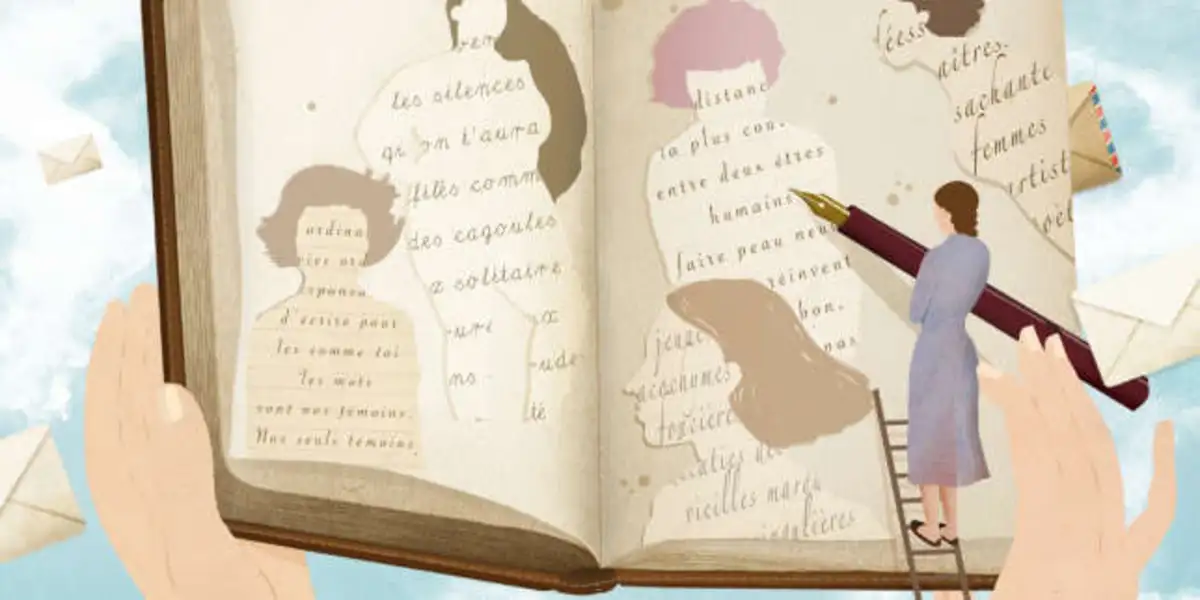 ren
les silences
qu'on t'aura
filés comm
des cagoules
x solitaire
ure
ux
ns
ude
té
ordina
vive
d'écrire pour
les comme toi
les mots
sont nos témoins.
Nos seuls témoins,
distanc
la plus cou.
entre deux êtres
humains
faire peau neu
réinvent
bon.
nas
jeune
acconumes
vieilles maréa
ingulières
fécess
aîtres.
sachante
femmes
artist
poèt